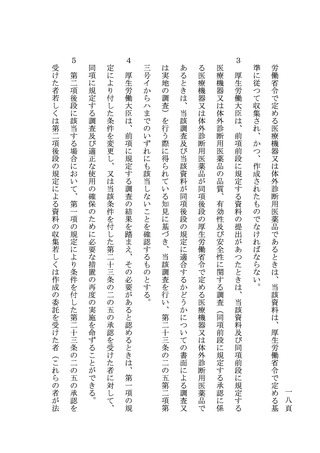 一八頁
労働省令で定める医療機器又は体外診断用医薬品であるときは、当該資料は、厚生労働省令で定める基
準に従つて収集され、かつ、作成されたものでなければならない。
3 厚生労働大臣は、前項前段に規定する資料の提出があつたときは、当該資料及び同項前段に規定する
医療機器又は体外診断用医薬品の品質、有効性及び安全性に関する調査(同項前段に規定する承認に係
る医療機器又は体外診断用医薬品が同項後段の厚生労働省令で定める医療機器又は体外診断用医薬品で
あるときは、当該調査及び当該資料が同項後段の規定に適合するかどうかについての書面による調査又
は実地の調査)を行う際に得られている知見に基づき、当該調査を行い、第二十三条の二の五第二項第
三号イからハまでのいずれにも該当しないことを確認するものとする。
4 厚生労働大臣は、前項に規定する調査の結果を踏まえ、その必要があると認めるときは、第一項の規
定により付した条件を変更し、又は当該条件を付した第二十三条の二の五の承認を受けた者に対して、
同項に規定する調査及び適正な使用の確保のために必要な措置の再度の実施を命ずることができる。
5 第二項後段に該当する場合において、第一項の規定により条件を付した第二十三条の二の五の承認を
受けた者若しくは第二項後段の規定による資料の収集若しくは作成の委託を受けた者(これらの者が法